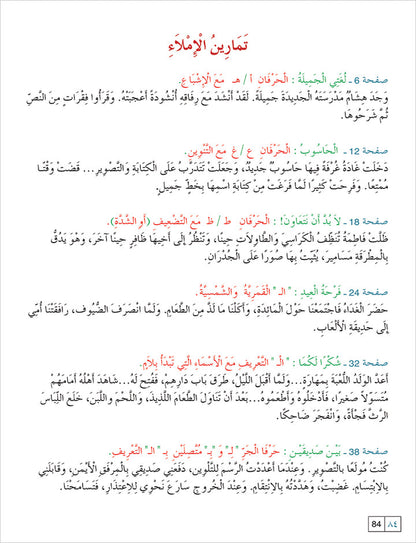 تَمَارِينُ الْإِمْلَاءِ
صفحة 6 - لُغَتِي الْجَمِيلَةُ : الْحَرْفَانِ أ / هـ مَعَ الْإِشْبَاعِ.
وَجَدَ هِشَامٌ مَدْرَسَتَهُ الْجَدِيدَةَ جَمِيلَةً. لَقَدْ أَنْشَدَ مَعَ رِفَاقِهِ أُنْشُودَةً أَعْجَبَتْهُ. وَقَرَأُوا فِقْرَاتٍ مِنَ النَّصِّ
ثُمَّ شَرَحُوهَا.
صفحة 12 - الْحَاسُوبُ : الْحَرْفَانِ ع / غ مَعَ التَّنْوِينِ.
دَخَلَتْ غَادَةُ غُرْفَةً فِيهَا حَاسُوبٌ جَدِيدٌ، وَجَعَلَتْ تَتَدَرَّبُ عَلَى الْكِتَابَةِ وَالتَّصْوِيرِ... قَضَتْ وَقْتًا
مُمْتِعًا. وَفَرِحَتْ كَثِيرًا لَمَّا فَرَغَتْ مِنْ كِتَابَةِ اسْمِهَا بِخَطٍّ جَمِيلٍ.
صفحة 18 - لَا بُدَّ أَنْ نَتَعَاوَنَ! : الْحَرْفَانِ ط / ظ مَعَ التَّضْعِيفِ (أَوِ الشَّدَّةِ).
ظَلَّتْ فَاطِمَةُ تُنَظِّفُ الْكَرَاسِيَ وَالطَّاوِلَاتِ حِينًا، وَتَنْظُرُ إِلَى أَخِيهَا ظَافِرٍ حِينًا آخَرَ، وَهْوَ يَدُقُّ
بِالْمِطْرَقَةِ مَسَامِيرَ، يُثَبِّتُ بِهَا صُوَرًا عَلَى الْجُدْرَانِ.
صفحة 24 - فَرْحَةُ الْعِيدِ : " الـ " الْقَمَرِيَّةُ وَالشَّمْسِيَّةُ.
حَضَرَ الْغَدَاءُ فَاجْتَمَعْنَا حَوْلَ الْمَائِدَةِ، وَأَكَلْنَا مَا لَذَّ مِنَ الطَّعَامِ. وَلَمَّا انْصَرَفَ الضُّيُوفُ، رَافَقَتْنَا أُمِّي
إِلَى حَدِيقَةِ الْأَلْعَابِ.
صفحة 32 - شُكْرًا لَكُمَا : " الـ " التَّعْرِيفِ مَعَ الْأَسْمَاءِ الَّتِي تَبْدَأُ بِلَامٍ.
أَعَدَّ الْوَلَدُ اللُّعْبَةَ بِمَهَارَةٍ...وَلَمَّا أَقْبَلَ اللَّيْلُ، طَرَقَ بَابَ دَارِهِمْ، فَفُتِحَ لَهُ...شَاهَدَ أَهْلُهُ أَمَامَهُمْ
مُتَسَوِّلًا صَغِيرًا، فَأَدْخَلُوهُ وَأَطْعَمُوهُ...بَعْدَ أَنْ تَنَاوَلَ الطَّعَامَ اللَّذِيذَ، وَاللَّحْمَ وَاللَّبَنَ، خَلَعَ اللِّبَاسَ
الرَّثَّ فَجْأَةً، وَانْفَجَرَ ضَاحِكًا.
صفحة 38 - بَيْنَ صَدِيقَيْنِ : حَرْفَا الْجَرِّ "لِـ" وَ"بِـ" مُتَّصِلَيْنِ بِـ "الـ" التَّعْرِيفِ.
كُنْتُ مُولَعًا بِالتَّصْوِيرِ. وَعِنْدَمَا أَعْدَدْتُ الرَّسْمَ لِلتَّلْوِينِ، دَفَعَنِي صَدِيقِي بِالْمِرْفَقِ الْأَيْمَنِ، وَقَابَلَنِي
بِالِابْتِسَامِ. غَضِبْتُ، وَهَدَّدْتُهُ بِالِانْتِقَامِ. وَعِنْدَ الْخُرُوجِ سَارَعَ نَحْوِي لِلِاعْتِذَارِ، فَتَسَامَحْنَا.
84 ٨٤